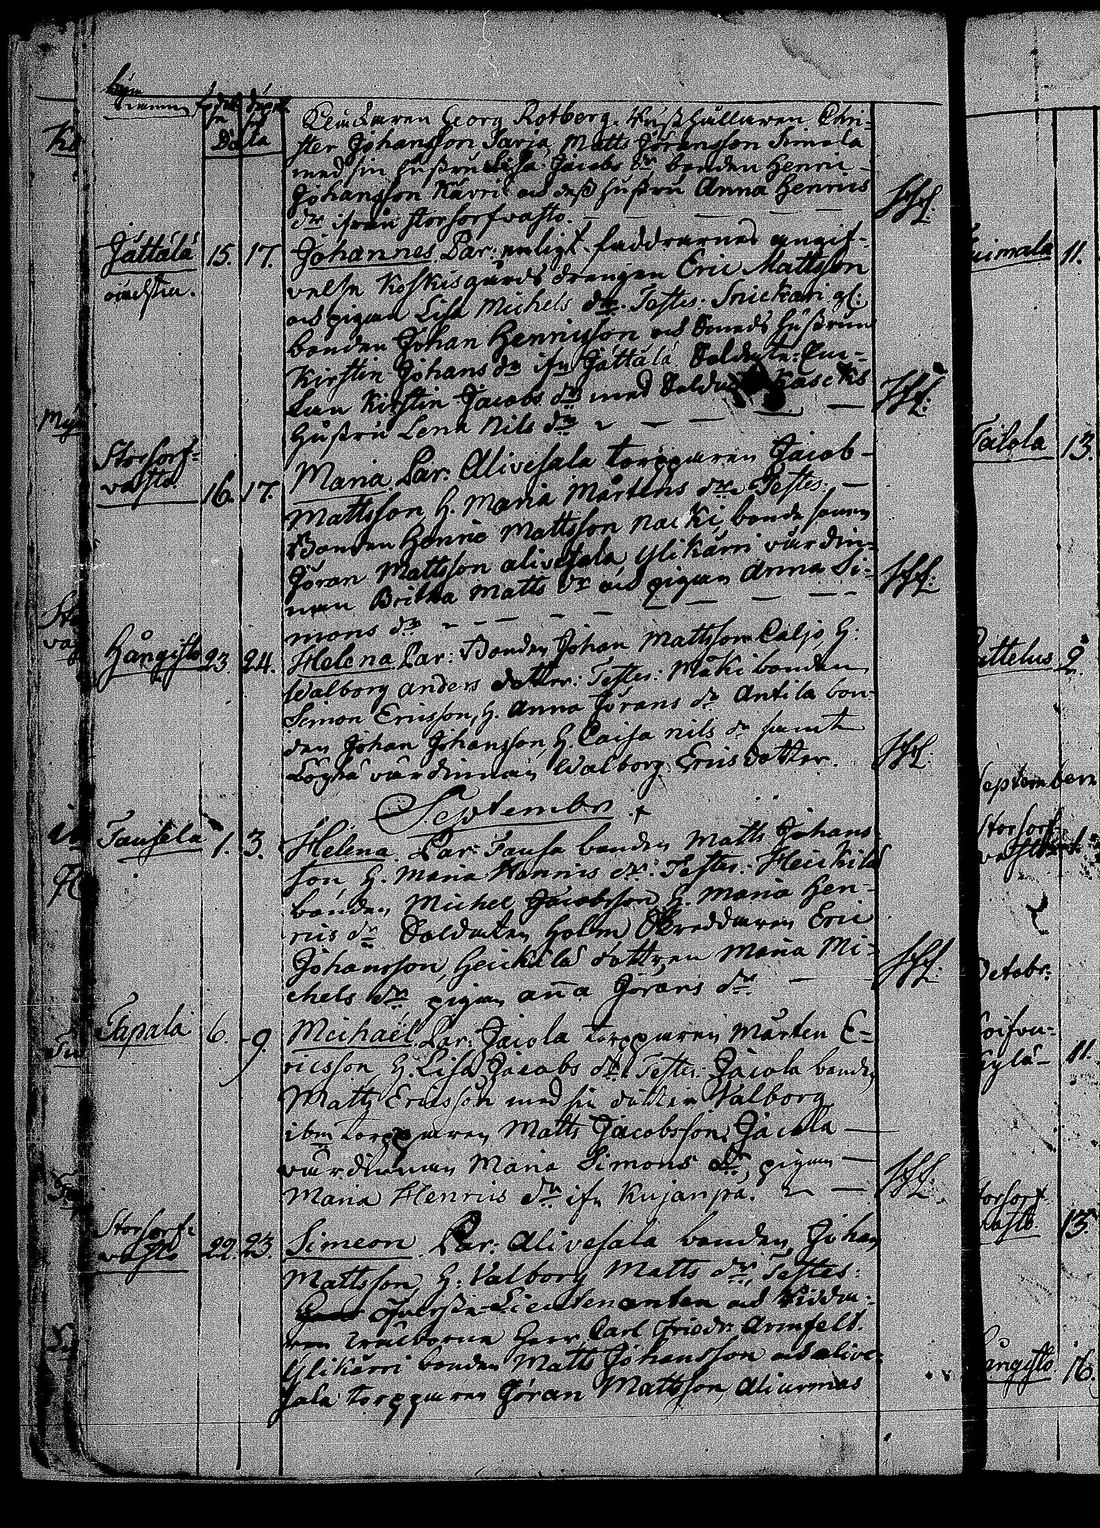 födde döpte
Da la
Georg Rotberg, Hußhållaren Chri-
ster Johansson Sarja, Matts Jöransson Simola
med sin hustru Lisa Jacobs dr bonden Henric
Johansson Kåvri och deß hustru Anna Henrics
dr ifrån Storsorfvasto.
Jättälä 15. 17. Johannes. Par: enligt faddrarnes angif-
velse Koskis gårds drengen Eric Mattsson
och pigan Lisa Michels dr. Testes. Snickari gl:
bonden Johan Henricsson och Sonens hustru
Kirstin Johans dr ifr Jättälä Soldate En-
kan Kirstin Jacobs dr med Soldat Kascks
hustru Lena Nils dr
Storsorf-
vasto 16. 17. Maria. Par. Alivesala torpparen Jacob
Mattsson H. Maria Mårtens dr. Testes:
Bonden Henric Mattsson Nacki, bonde sonen
Jöran Mattsson alivesala Ylikärri värdin-
nan Britha Matts dr och pigan Anna Si-
mons dr
Hångisto 23. 24. Helena. Par: Bonden Johan Mattsson Caljo H:
Walborg anders dotter: Testes: Mäki bonden
Simon Ericsson, H. Anna Jörans dr Antila bon-
den Johan Johansson, H. Caisa nils dr samt
värdinnan Walborg Ericsdotter.
September
Tausela 1. 3. Helena. Par: Tausa bonden Matts Johans-
son, H. Maria Henrics dr: Testes: Heickilä
bonden Michel Jacobsson H. Maria Hen-
rics dr Soldaten Holm Skreddaren Eric
Johansson, Heickilä dottren Maria Mi-
chels dr pigan aña Jörans dr
Tapala 6. 9. Michaël. Par: Jacola torpparen Mårten E-
ricsson H. Lisa Jacobs dr Testes: Jacola bonden
Matts Ericsson med sin dotter Walborg
ibm torpparen Matts Jacobsson, Jacola
värdinnan Maria Simons dr, pigan
Maria Henrics dr ifr Kujanpä.
Storsorf-
vasto 22. 23. Simeon. Par: Alivesala bonden Johan
Mattsson H: Valborg Matts dr, Testes:
Öfverste-Lieutenanten och Ridda-
ren Herr Carl Friedr. Armfelt.
Ylikärri bonden Matts Johansson och alive-
sala torpparen Jöran Mattsson, Aliurmas
11.
Talola 13.
9.
September
Storsorf
Octobr:
11.
13.
Hångisto 16.